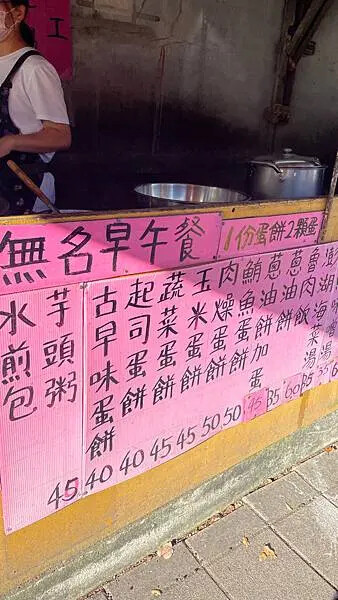 工
無名早午餐
1份蛋餅2顆蛋
水煎包
芋頭粥 45
古早味蛋餅 40
起司蛋餅 40
蔬菜蛋餅 45
玉米蛋餅 45
肉燥蛋餅 50
鮪魚蛋餅 50
蔥油餅加蛋 45
蔥油餅 35
魯肉飯
海菜湯 35